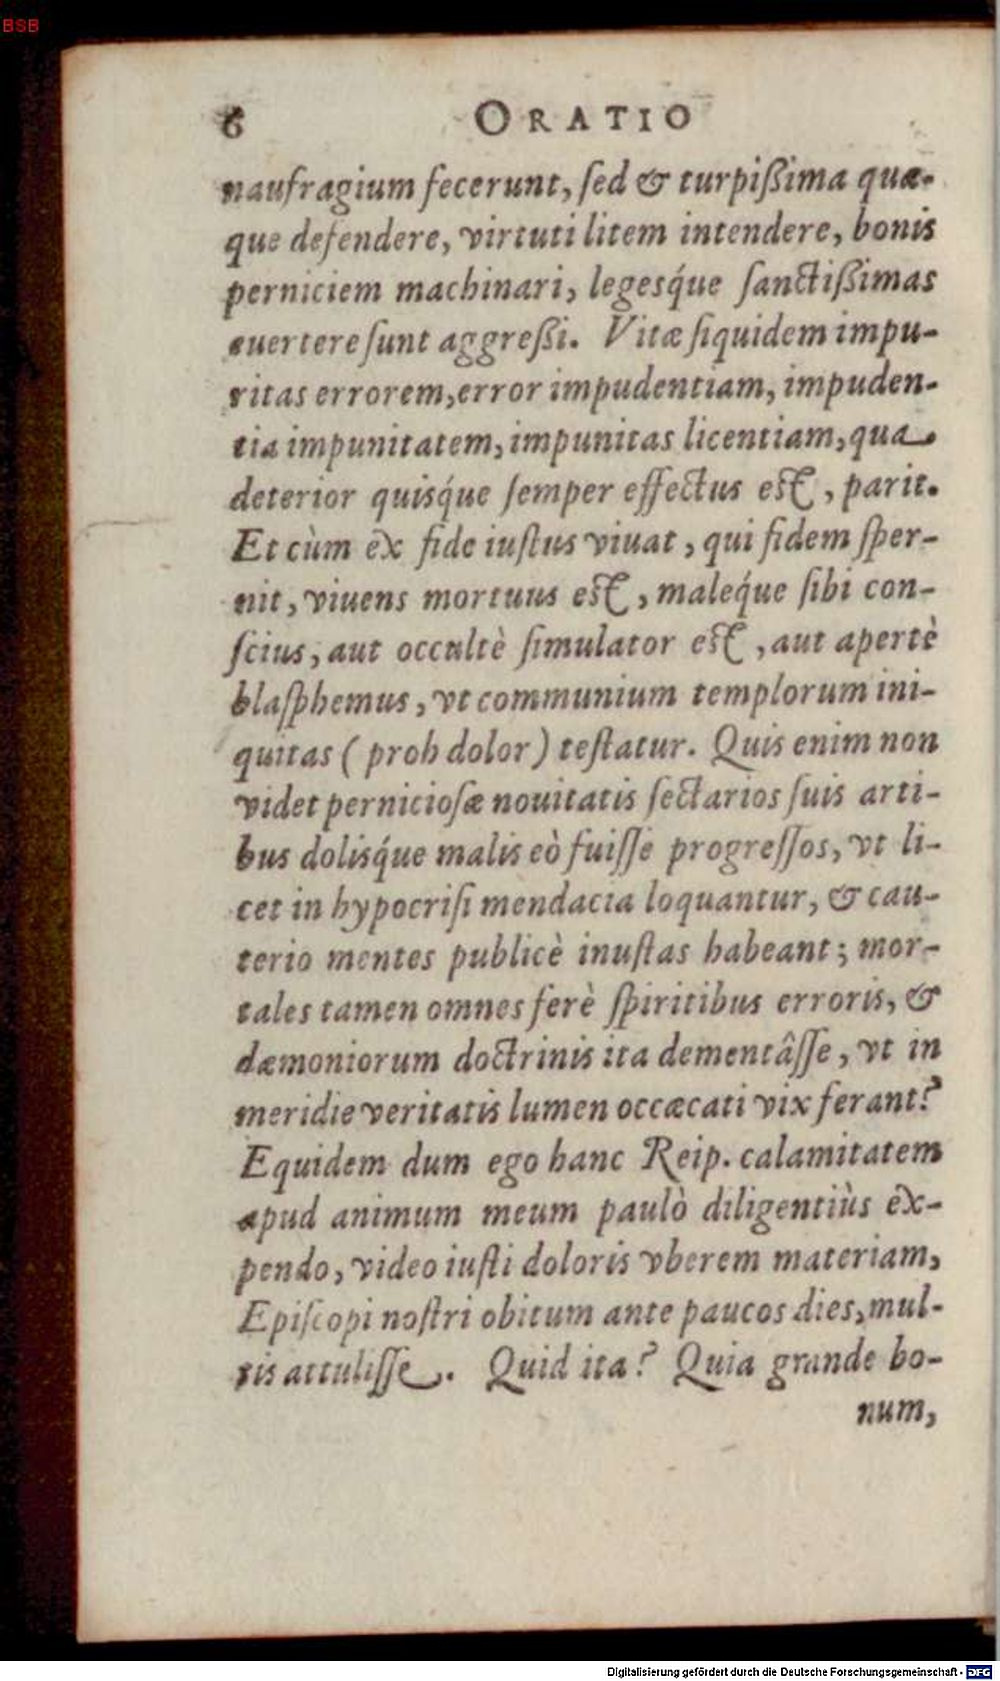 BSB
6 ORATIO
naufragium fecerunt, sed & turpißima quæ-
que defendere, virtuti litem intendere, bonis
perniciem machinari, legesq́ue sanctißimas
euertere sunt aggreßi. Vitæ siquidem impu-
ritas errorem, error impudentiam, impuden-
tia impunitatem, impunitas licentiam, qua
deterior quisq́ue semper effectus est, parit.
Et cùm ex fide iustus viuat, qui fidem sper-
nit, viuens mortuus est, maleq́ue sibi con-
scius, aut occultè simulator est, aut apertè
blasphemus, vt communium templorum ini-
quitas (proh dolor) testatur. Quis enim non
videt perniciosæ nouitatis sectarios suis arti-
bus dolisq́ue malis eò fuisse progressos, vt li-
cet in hypocrisi mendacia loquantur, & cau-
terio mentes publicè inustas habeant; mor-
tales tamen omnes ferè spiritibus erroris, &
dæmoniorum doctrinis ita dementâsse, vt in
meridie veritatis lumen occæcati vix ferant?
Equidem dum ego hanc Reip. calamitatem
apud animum meum paulò diligentiùs ex-
pendo, video iusti doloris vberem materiam,
Episcopi nostri obitum ante paucos dies, mul-
tis attulisse. Quid ita? Quia grande bo-
num,
Digitalisierung gefördert durch die Deutsche Forschungsgemeinschaft - DFG